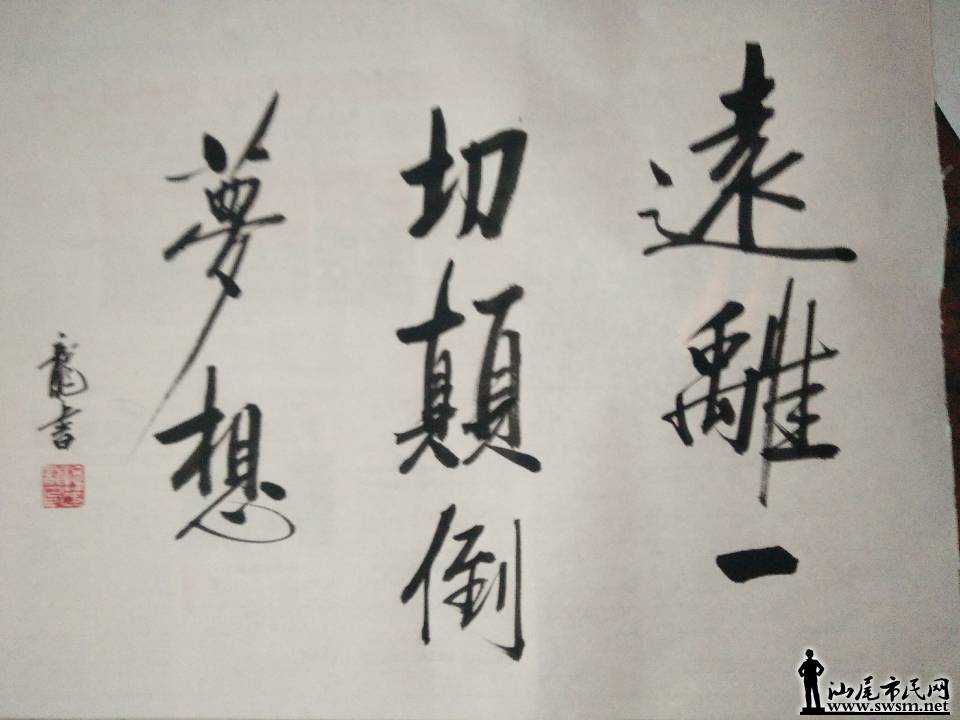 遠離一
切顛倒
夢想
龍書
汕尾市民网
www.swsm.net